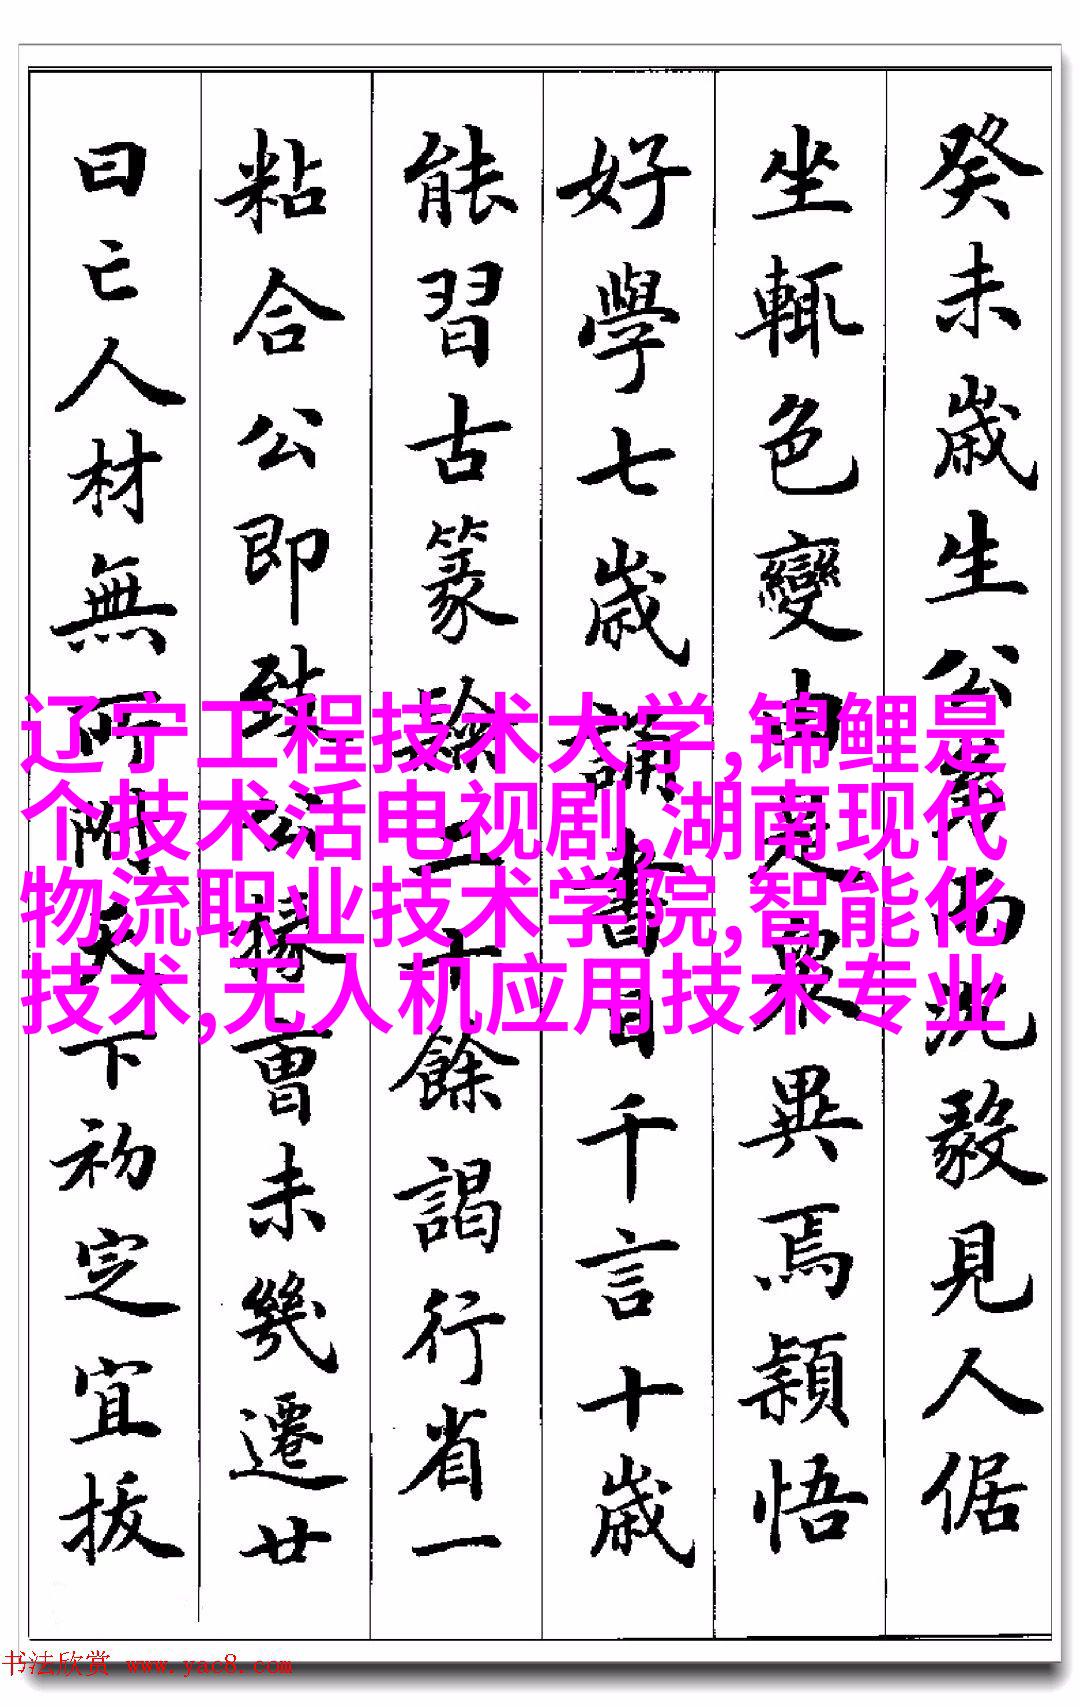 癸未歲生公而沈毅見人倨
坐輒色變由是眾異焉穎悟
好學七歲誦書日千言十歲
能習古篆二十餘謁行省一
粘合公即致公掾曹未幾遷廿
曰亡人材無所附天下初定宜拔
辽宁工程技术大学,锦鲤是
个技术活电视剧,湖南现代
物流职业技术学院,智能化
技术,无人机应用技术专业
书法欣赏 www.yac8.com